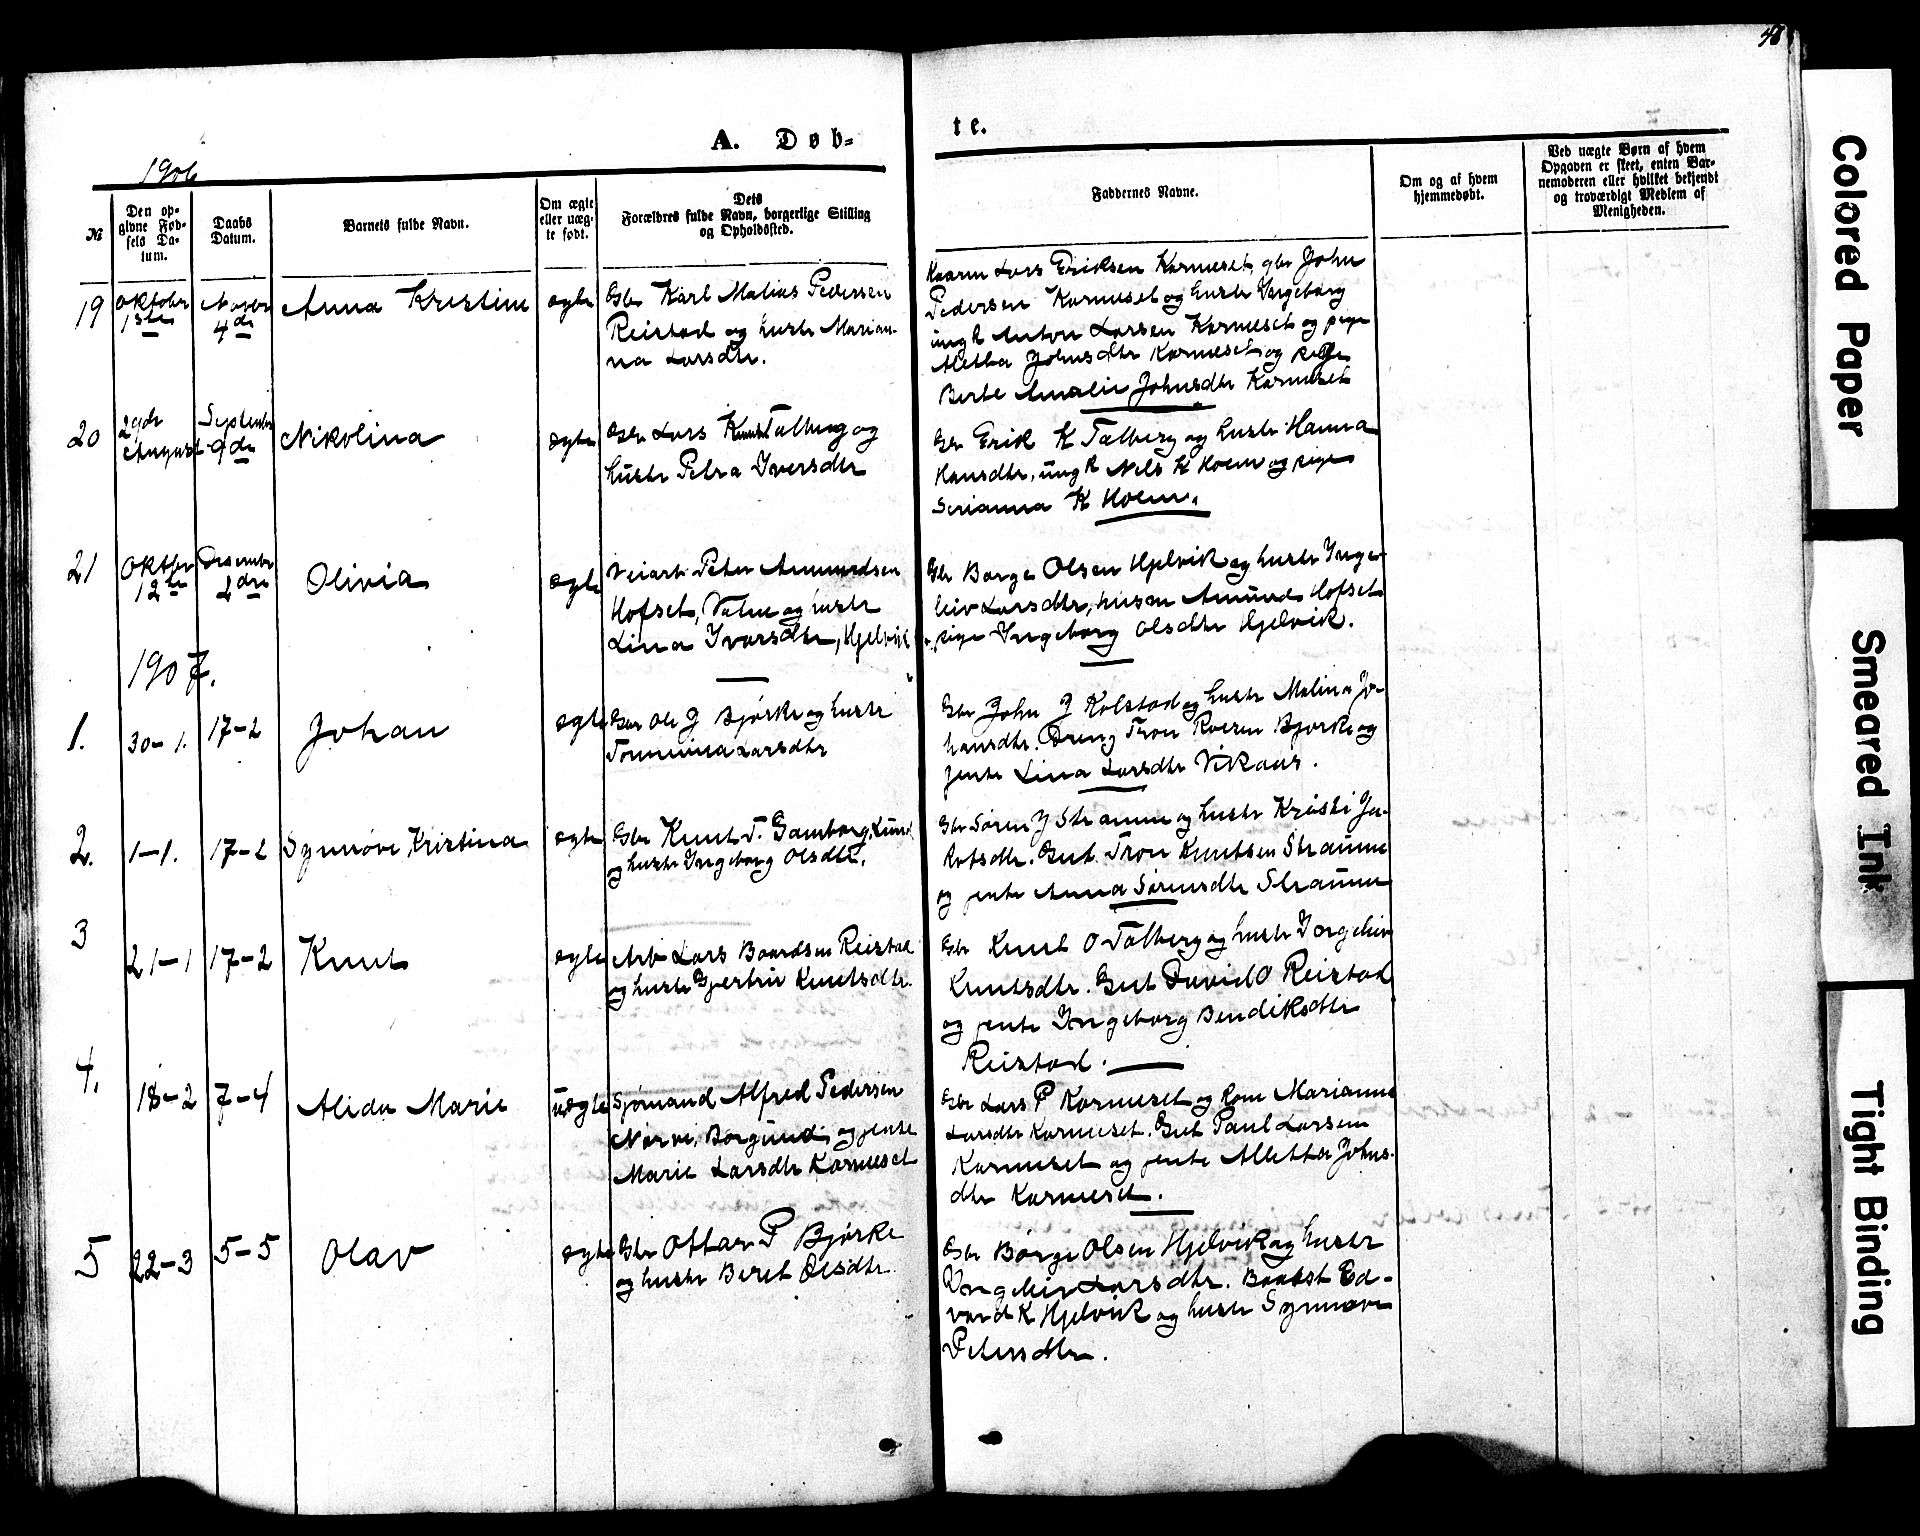 48
A. Døb-
te.
1906
№
Den op-
givne Fød-
sels Da-
tum.
Daabs
Datum.
Barnets fulde Navn.
Om ægte
eller uæg-
te født.
Dets
Forældres fulde Navn, borgerlige Stilling
og Opholdssted.
Faddernes Navne.
Om og af hvem
hjemmedøbt.
Ved uægte Børn af hvem
Opgaven er skeet, enten Bar-
nemoderen eller hvilket bekjendt
og troværdigt Medlem af
Menigheden.
19
Oktober
1ste
Novbr
4de
Anna Kristine
ægte
Gbr Karl Matias Pedersen
Reistad og hustr Marian-
na Larsdtr.
Kaarm Lars Eriksen Karneset, gbr John
Pedersen Karneset og hustr Ingeborg
ungk Anton Larsen Karneset og pige
Aletta Johnsdtr Karneset og pige
Berte Amalie Johnsdtr Karneset
20
29de
August
September
9de
Nikolina
ægte
Gbr Lars Knuts Talberg og
hustr Petra Iversdtr
Gbr Erik K Talberg og hustr Hanna
Hansdtr, ungk Nils K Hoem og pige
Serianna K Hoem.
21
Oktbr
12te
Desember
2den
Olivia
ægte
Veiarb Peter Amundsen
Hofset, Vatne og hustr
Lina Ivarsdtr, Hjelvik
Gbr Børge Olsen Hjelvik og hustr Inge-
leiv Larsdtr, husm Amund Hofset
pige Ingeborg Olsdtr Hjelvik.
1907.
1.
30-1.
17-2
Johan
ægte
Gbr Ole J Bjørke og hustr
Tomnina Larsdtr
Gbr John J Kolstad og hustr Malina Jo-
hansdtr. Dreng Tron Roeren Bjørke og
jente Lina Larsdtr Vikaas.
2.
1-1.
17-2
Synnøve Kristina
ægte
Gbr Knut T. Gamborg, Lund
og hustr Ingeborg Olsdtr.
Gbr Søren J Straume og hustr Kristi Ja-
kobsdtr. Gut Tron Knutsen Straume
og jente Anna Sørensdtr Straume
3
21-1
17-2
Knut
ægte
Arb Lars Baardsen Reistad
og hustr Gjertrü Knutsdtr.
Gbr Knut O Talberg og hustr Ingeleiv
Knutsdtr. Gut David O Reistad
og jente Ingeborg Bendiksdtr
Reistad.
4.
18-2
7-4
Alida Marie
uægte
Sjømand Alfred Pedersen
Nørve, Borgund, og jente
Marie Larsdtr Karneset
Gbr Lars P Karneset og kone Marianne
Larsdtr Karneset. Gut Paul Larsen
Karneset og jente Aletta Johns-
dtr Karneset.
5
22-3
5-5
Olav
ægte
Gbr Ottar P Bjørke
og hustr Beret Olsdtr.
Gbr Børge Olsen Hjelvik og hustr
Ingeleiv Larsdtr. Baatst Ed-
vard K Hjelvik og hustr Synnøve
Petersdtr.
Colored Paper
Smeared Ink
Tight Binding